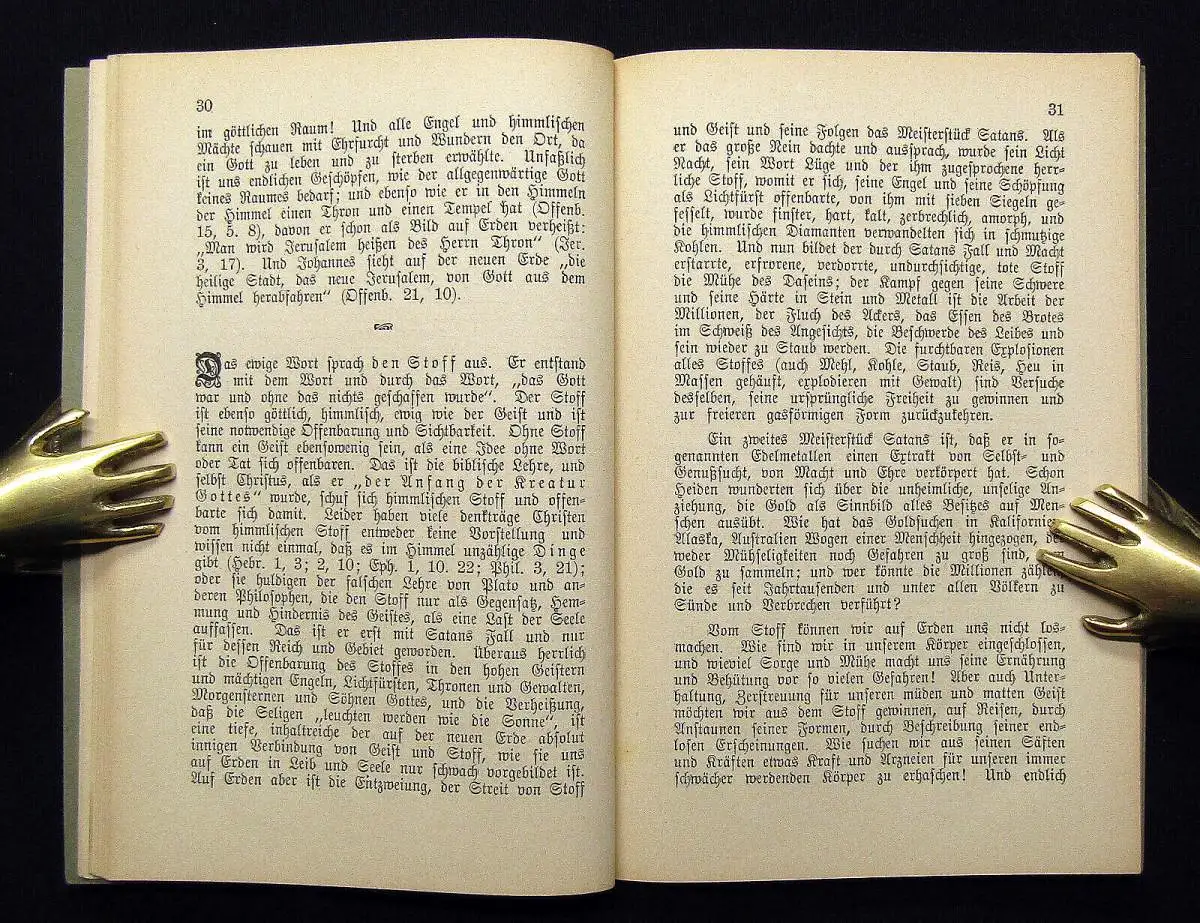 30
im göttlichen Raum! Und alle Engel und himmlischen
Mächte schauen mit Ehrfurcht und Wundern den Ort, da
ein Gott zu leben und zu sterben erwählte. Unfaßlich
ist uns endlichen Geschöpfen, wie der allgegenwärtige Gott
keines Raumes bedarf; und ebenso wie er in den Himmeln
der Himmel einen Thron und einen Tempel hat (Offenb.
15, 5. 8), davon er schon als Bild auf Erden verheißt:
„Man wird Jerusalem heißen des Herrn Thron“ (Jer.
3, 17). Und Johannes sieht auf der neuen Erde „die
heilige Stadt, das neue Jerusalem, von Gott aus dem
Himmel herabfahren“ (Offenb. 21, 10).
Das ewige Wort sprach den Stoff aus. Er entstand
mit dem Wort und durch das Wort, „das Gott
war und ohne das nichts geschaffen wurde“. Der Stoff
ist ebenso göttlich, himmlisch, ewig wie der Geist und ist
seine notwendige Offenbarung und Sichtbarkeit. Ohne Stoff
kann ein Geist ebensowenig sein, als eine Idee ohne Wort
oder Tat sich offenbaren. Das ist die biblische Lehre, und
selbst Christus, als er „der Anfang der Kreatur
Gottes“ wurde, schuf sich himmlischen Stoff und offen-
barte sich damit. Leider haben viele denkträge Christen
vom himmlischen Stoff entweder keine Vorstellung und
wissen nicht einmal, daß es im Himmel unzählige Dinge
gibt (Hebr. 1, 3; 2, 10; Eph. 1, 10. 22; Phil. 3, 21);
oder sie huldigen der falschen Lehre von Plato und an-
deren Philosophen, die den Stoff nur als Gegensatz, Hem-
mung und Hindernis des Geistes, als eine Last der Seele
auffassen. Das ist er erst mit Satans Fall und nur
für dessen Reich und Gebiet geworden. Überaus herrlich
ist die Offenbarung des Stoffes in den hohen Geistern
und mächtigen Engeln, Lichtfürsten, Thronen und Gewalten,
Morgensternen und Söhnen Gottes, und die Verheißung,
daß die Seligen „leuchten werden wie die Sonne“, ist
eine tiefe, inhaltreiche der auf der neuen Erde absolut
innigen Verbindung von Geist und Stoff, wie sie uns
auf Erden in Leib und Seele nur schwach vorgebildet ist.
Auf Erden aber ist die Entzweiung, der Streit von Stoff
31
und Geist und seine Folgen das Meisterstück Satans. Als
er das große Nein dachte und aussprach, wurde sein Licht
Nacht, sein Wort Lüge und der ihm zugesprochene herr-
liche Stoff, womit er sich, seine Engel und seine Schöpfung
als Lichtfürst offenbarte, von ihm mit sieben Siegeln ge-
fesselt, wurde finster, hart, kalt, zerbrechlich, amorph, und
die himmlischen Diamanten verwandelten sich in schmutzige
Kohlen. Und nun bildet der durch Satans Fall und Macht
erstarrte, erfrorene, verdorrte, undurchsichtige, tote Stoff
die Mühe des Daseins; der Kampf gegen seine Schwere
und seine Härte in Stein und Metall ist die Arbeit der
Millionen, der Fluch des Ackers, das Essen des Brotes
im Schweiß des Angesichts, die Beschwerde des Leibes und
sein wieder zu Staub werden. Die furchtbaren Explosionen
alles Stoffes (auch Mehl, Kohle, Staub, Reis, Heu in
Massen gehäuft, explodieren mit Gewalt) sind Versuche
desselben, seine ursprüngliche Freiheit zu gewinnen und
zur freieren gasförmigen Form zurückzukehren.
Ein zweites Meisterstück Satans ist, daß er in so-
genannten Edelmetallen einen Extrakt von Selbst- und
Genußsucht, von Macht und Ehre verkörpert hat. Schon
Heiden wunderten sich über die unheimliche, unselige An-
ziehung, die Gold als Sinnbild alles Besitzes auf Men-
schen ausübt. Wie hat das Goldsuchen in Kalifornien,
Alaska, Australien Wogen einer Menschheit hingezogen,
weder Mühseligkeiten noch Gefahren zu groß sind,
Gold zu sammeln; und wer könnte die Millionen zählen,
die es seit Jahrtausenden und unter allen Völkern zu
Sünde und Verbrechen verführt?
Vom Stoff können wir auf Erden uns nicht los-
machen. Wie sind wir in unserem Körper eingeschlossen,
und wieviel Sorge und Mühe macht uns seine Ernährung
und Behütung vor so vielen Gefahren! Aber auch Unter-
haltung, Zerstreuung für unseren müden und matten Geist
möchten wir aus dem Stoff gewinnen, auf Reisen, durch
Anstaunen seiner Formen, durch Beschreibung seiner end-
losen Erscheinungen. Wie suchen wir aus seinen Säften
und Kräften etwas Kraft und Arzneien für unseren immer
schwächer werdenden Körper zu erhaschen! Und endlich